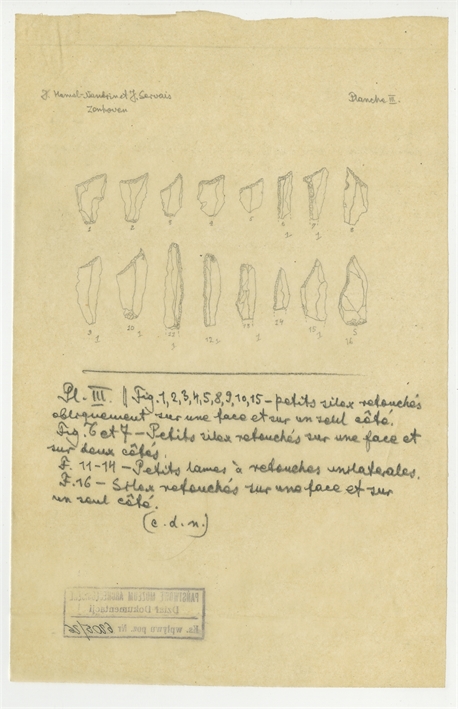 J. Hamal-Nandrin & J. Servais
Zonhoven
Planche II.
1 2 3 4 5 6 7 8
9 10 11 12 13 14 15 16
Pl. III Fig. 1, 2, 3, 4, 5, 8, 9, 10, 15 – petits silex retouchés
obliquement sur une face et sur un seul côté.
Fig. 6 et 7 – Petits silex retouchés sur une face et
sur deux côtés.
F. 11-14 – Petits lames à retouches unilaterales.
F. 16 – Silex retouchés sur une face et sur
un seul côté.
(c.d.n.)
PAŃSTWOWE MUZEUM ARCHEOLOGICZNE
Dział Dokumentacji
Ks. wpływu poz. Nr